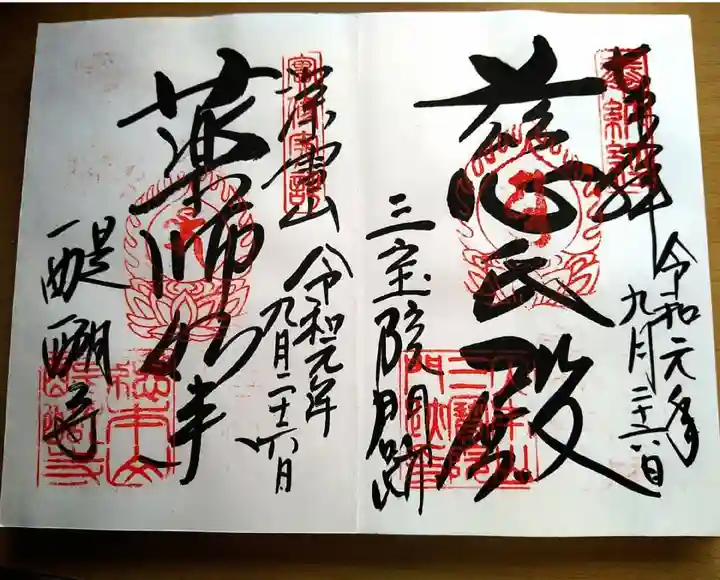 奉拝
令和元年
九月二十六日
慈氏殿
三宝院門跡
深雪山
令和元年
九月二十六日
薬師如来
醍醐寺